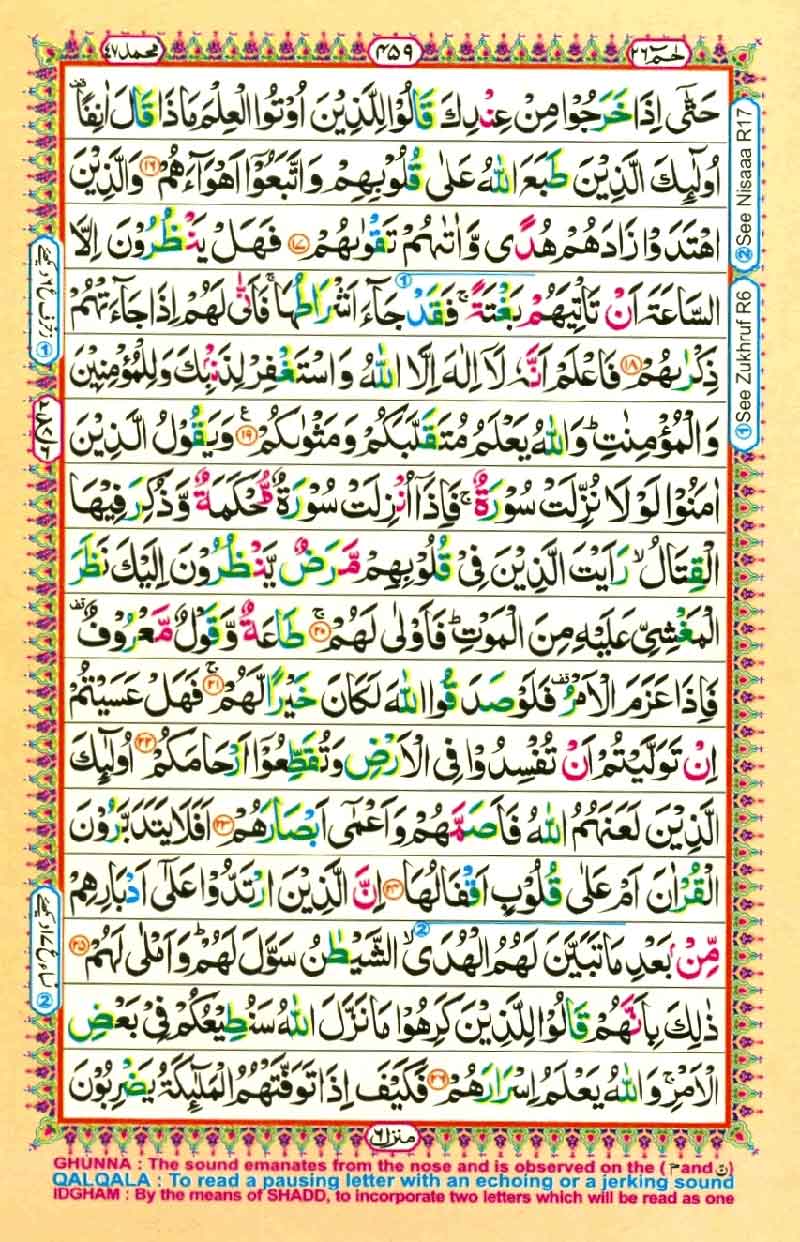 حٰمٓ ٢٦
٤٥٩
محمد ٤٧
حَتّٰۤى اِذَا خَرَجُوْا مِنْ عِنْدِكَ قَالُوْا لِلَّذِيْنَ اُوْتُوا الْعِلْمَ مَاذَا قَالَ اٰنِفًا قف
اُولٰٓئِكَ الَّذِيْنَ طَبَعَ اللّٰهُ عَلٰى قُلُوْبِهِمْ وَاتَّبَعُوْۤا اَهْوَآءَهُمْ ﴿١٦﴾ وَالَّذِيْنَ
اهْتَدَوْا زَادَهُمْ هُدًى وَّاٰتٰىهُمْ تَقْوٰىهُمْ ﴿١٧﴾ فَهَلْ يَنْظُرُوْنَ اِلَّا
السَّاعَةَ اَنْ تَاْتِيَهُمْ بَغْتَةً ۚ فَقَدْ جَآءَ اَشْرَاطُهَا ۚ فَاَنّٰى لَهُمْ اِذَا جَآءَتْهُمْ
ذِكْرٰىهُمْ ﴿١٨﴾ فَاعْلَمْ اَنَّهٗ لَاۤ اِلٰهَ اِلَّا اللّٰهُ وَاسْتَغْفِرْ لِذَنْۢبِكَ وَلِلْمُؤْمِنِيْنَ
وَالْمُؤْمِنٰتِ ؕ وَاللّٰهُ يَعْلَمُ مُتَقَلَّبَكُمْ وَمَثْوٰىكُمْ ﴿١٩﴾ ع وَيَقُوْلُ الَّذِيْنَ
اٰمَنُوْا لَوْلَا نُزِّلَتْ سُوْرَةٌ ۚ فَاِذَاۤ اُنْزِلَتْ سُوْرَةٌ مُّحْكَمَةٌ وَّذُكِرَ فِيْهَا
الْقِتَالُ ۙ رَاَيْتَ الَّذِيْنَ فِيْ قُلُوْبِهِمْ مَّرَضٌ يَّنْظُرُوْنَ اِلَيْكَ نَظَرَ
الْمَغْشِيِّ عَلَيْهِ مِنَ الْمَوْتِ ؕ فَاَوْلٰى لَهُمْ ﴿٢٠﴾ ۚ طَاعَةٌ وَّقَوْلٌ مَّعْرُوْفٌ قف
فَاِذَا عَزَمَ الْاَمْرُ قف فَلَوْ صَدَقُوا اللّٰهَ لَكَانَ خَيْرًا لَّهُمْ ﴿٢١﴾ ۚ فَهَلْ عَسَيْتُمْ
اِنْ تَوَلَّيْتُمْ اَنْ تُفْسِدُوْا فِى الْاَرْضِ وَتُقَطِّعُوْۤا اَرْحَامَكُمْ ﴿٢٢﴾ اُولٰٓئِكَ
الَّذِيْنَ لَعَنَهُمُ اللّٰهُ فَاَصَمَّهُمْ وَاَعْمٰۤى اَبْصَارَهُمْ ﴿٢٣﴾ اَفَلَا يَتَدَبَّرُوْنَ
الْقُرْاٰنَ اَمْ عَلٰى قُلُوْبٍ اَقْفَالُهَا ﴿٢٤﴾ اِنَّ الَّذِيْنَ ارْتَدُّوْا عَلٰۤى اَدْبَارِهِمْ
مِّنْۢ بَعْدِ مَا تَبَيَّنَ لَهُمُ الْهُدَى ۙ الشَّيْطٰنُ سَوَّلَ لَهُمْ ؕ وَاَمْلٰى لَهُمْ ﴿٢٥﴾
ذٰلِكَ بِاَنَّهُمْ قَالُوْا لِلَّذِيْنَ كَرِهُوْا مَا نَزَّلَ اللّٰهُ سَنُطِيْعُكُمْ فِيْ بَعْضِ
الْاَمْرِ ۖۚ وَاللّٰهُ يَعْلَمُ اِسْرَارَهُمْ ﴿٢٦﴾ فَكَيْفَ اِذَا تَوَفَّتْهُمُ الْمَلٰٓئِكَةُ يَضْرِبُوْنَ
② See Nisaaa R17
① See Zukhruf R6
منزل ٦
GHUNNA : The sound emanates from the nose and is observed on the ( م and ن )
QALQALA : To read a pausing letter with an echoing or a jerking sound
IDGHAM : By the means of SHADD, to incorporate two letters which will be read as one